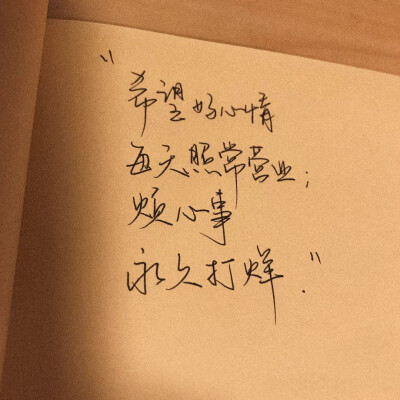 "希望好心情
每天照常营业；
烦心事
永久打烊."